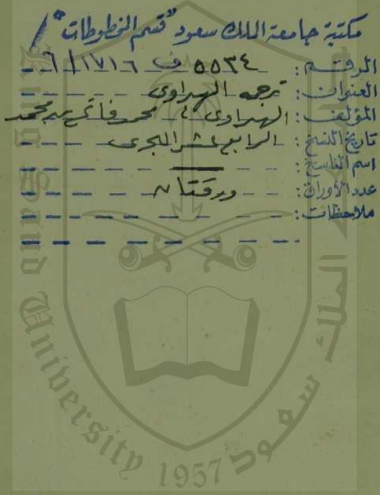 مكتبة جامعة الملك سعود "قسم المخطوطات"
الرقم: ٥٥٣٤ ف ١٧١٦ / ٦
العنوان: ترجمة الهراوي
المؤلف: الهراوي، محمد فاتح بن محمد
تاريخ النسخ: الرابع عشر الهجري
اسم الناسخ:
عدد الأوراق: ورقتان
ملاحظات:
King Saud University
1957
الملك سعود